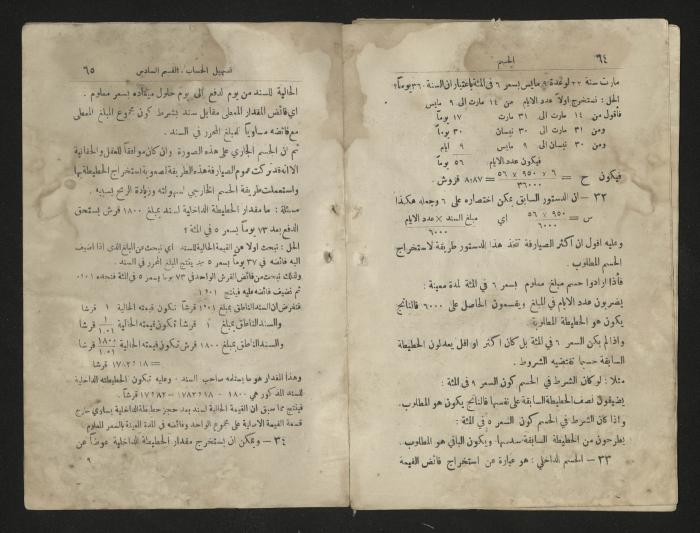 ٦٤
الحسم
مارت سنة ٢٢ لوعدة ٩ مايس بسعر ٦ في المئة باعتبار ان السنة ٣٦٠ يوماً؟
الحل: نستخرج اولاً عدد الايام من ١٤ مارت الى ٩ مايس
فأقول من ١٤ مارت الى ٣١ مارت ١٧ يوماً
ومن ٣١ مارت الى ٣٠ نيسان ٣٠ يوماً
ومن ٣٠ نيسان الى ٩ مايس ٩ ايام
فيكون عدد الايام ٥٦ يوماً
فيكون ح = ٦ × ٩٥٠ × ٥٦ / ٣٦٠٠٠ = ٨٫٨٧ قروش.
٣٢ — ان الدستور السابق يمكن اختصاره على ٦ وجعله هكذا
س = ٩٥٠ × ٥٦ / ٦٠٠٠ اي مبلغ السند × عدد الايام / ٦٠٠٠
وعليه اقول ان اكثر الصيارفة تتخذ هذا الدستور طريقة لاستخراج
الحسم المطلوب.
فأذا ارادوا حسم مبلغ معلوم بسعر ٦ في المئة لمدة معينة:
يضربون عدد الايام في المبلغ ويقسمون الحاصل على ٦٠٠٠ فالناتج
يكون هو الحطيطة المطلوبة
واذا لم يكن السعر ٦ في المئة بل كان اكثر او اقل يعدلون الحطيطة
السابقة حسبما تقتضيه الشروط.
مثلا: لو كان الشرط في الحسم كون السعر ٩ في المئة:
يضيفون نصف الحطيطة السابقة على نفسها فالناتج يكون هو المطلوب.
واذا كان الشرط في الحسم كون السعر ٥ في المئة:
يطرحون من الحطيطة السابقة سدسها ويكون الباقي هو المطلوب.
٣٣ — الحسم الداخلي: هو عبارة عن استخراج فائض القيمة
تسهيل الحساب. القسم السادس
٦٥
الحالية للسند من يوم الدفع الى يوم حلول ميعاده بسعر معلوم.
اي فائض المقدار المعطى مقابل سند بشرط كون مجموع المبلغ المعطى
مع فائضه مساوياً للمبلغ المحرر في السند.
ثم ان الحسم الجاري على هذه الصورة وان كان موافقاً للعقل والحقانية
الا انه قد تركت عموم الصيارفة هذه الطريقة لصعوبة استخراج الحطيطة بها
واستعملت طريقة الحسم الخارجي لسهولته وزيادة الربح بسببه.
مسئلة: ما مقدار الحطيطة الداخلية لسند بمبلغ ١٨٠٠ قرش يستحق
الدفع بعد ٧٣ يوماً بسعر ٥ في المئة؟
الحل: نبحث اولا عن القيمة الحالية للسند اي نبحث عن المبلغ الذي اذا اضيف
اليه فائضه في ٧٣ يوماً بسعر ٥ ينتج المبلغ المحرر في السند
ولذلك نبحث عن فائض القرش الواحد في ٧٣ يوماً بسعر ٥ في المئة فنجده ٠٫٠١
ثم نضيف فائضه فينتج ١٫٠١
فنفرض ان السند الناطق بمبلغ ١٫٠١ قرشاً تكون قيمته الحالية ١ قرشا
والسند الناطق بمبلغ ١ قرشا تكون قيمته الحالية ١ / ١٫٠١ قرشا
والسند الناطق بمبلغ ١٨٠٠ قرش تكون قيمته الحالية ١٨٠٠ / ١٫٠١ قرشا
= ١٧٨٢٫١٨ قرشا
وهذا المقدار هو ما يستلمه صاحب السند. وعليه تكون الحطيطة الداخلية
للسند المذكور هي ١٨٠٠ - ١٧٨٢٫١٨ = ١٧٫٨٢ قرشاً.
فينتج مما سبق ان القيمة الحالية لسند بعد حجز حطيطة الداخلية يساوي خارج
قسمة القيمة الاصلية على مجموع الواحد وفائضه في المدة المعينة بالسعر المعلوم
٣٤ — ويمكن ان يستخرج مقدار الحطيطة الداخلية عوضاً عن
٩